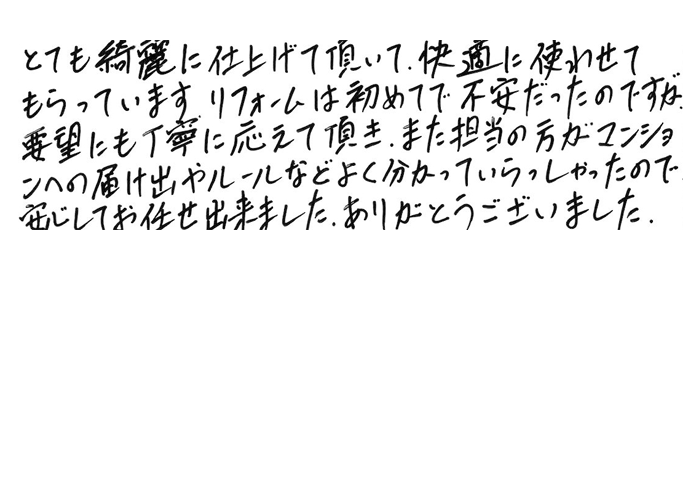 とても綺麗に仕上げて頂いて、快適に使わせて
もらっています。リフォームは初めてで不安だったのですが、
要望にも丁寧に応えて頂き、また担当の方がマンショ
ンへの届け出やルールなどよく分かっていらっしゃったので、
安心してお任せ出来ました。ありがとうございました。